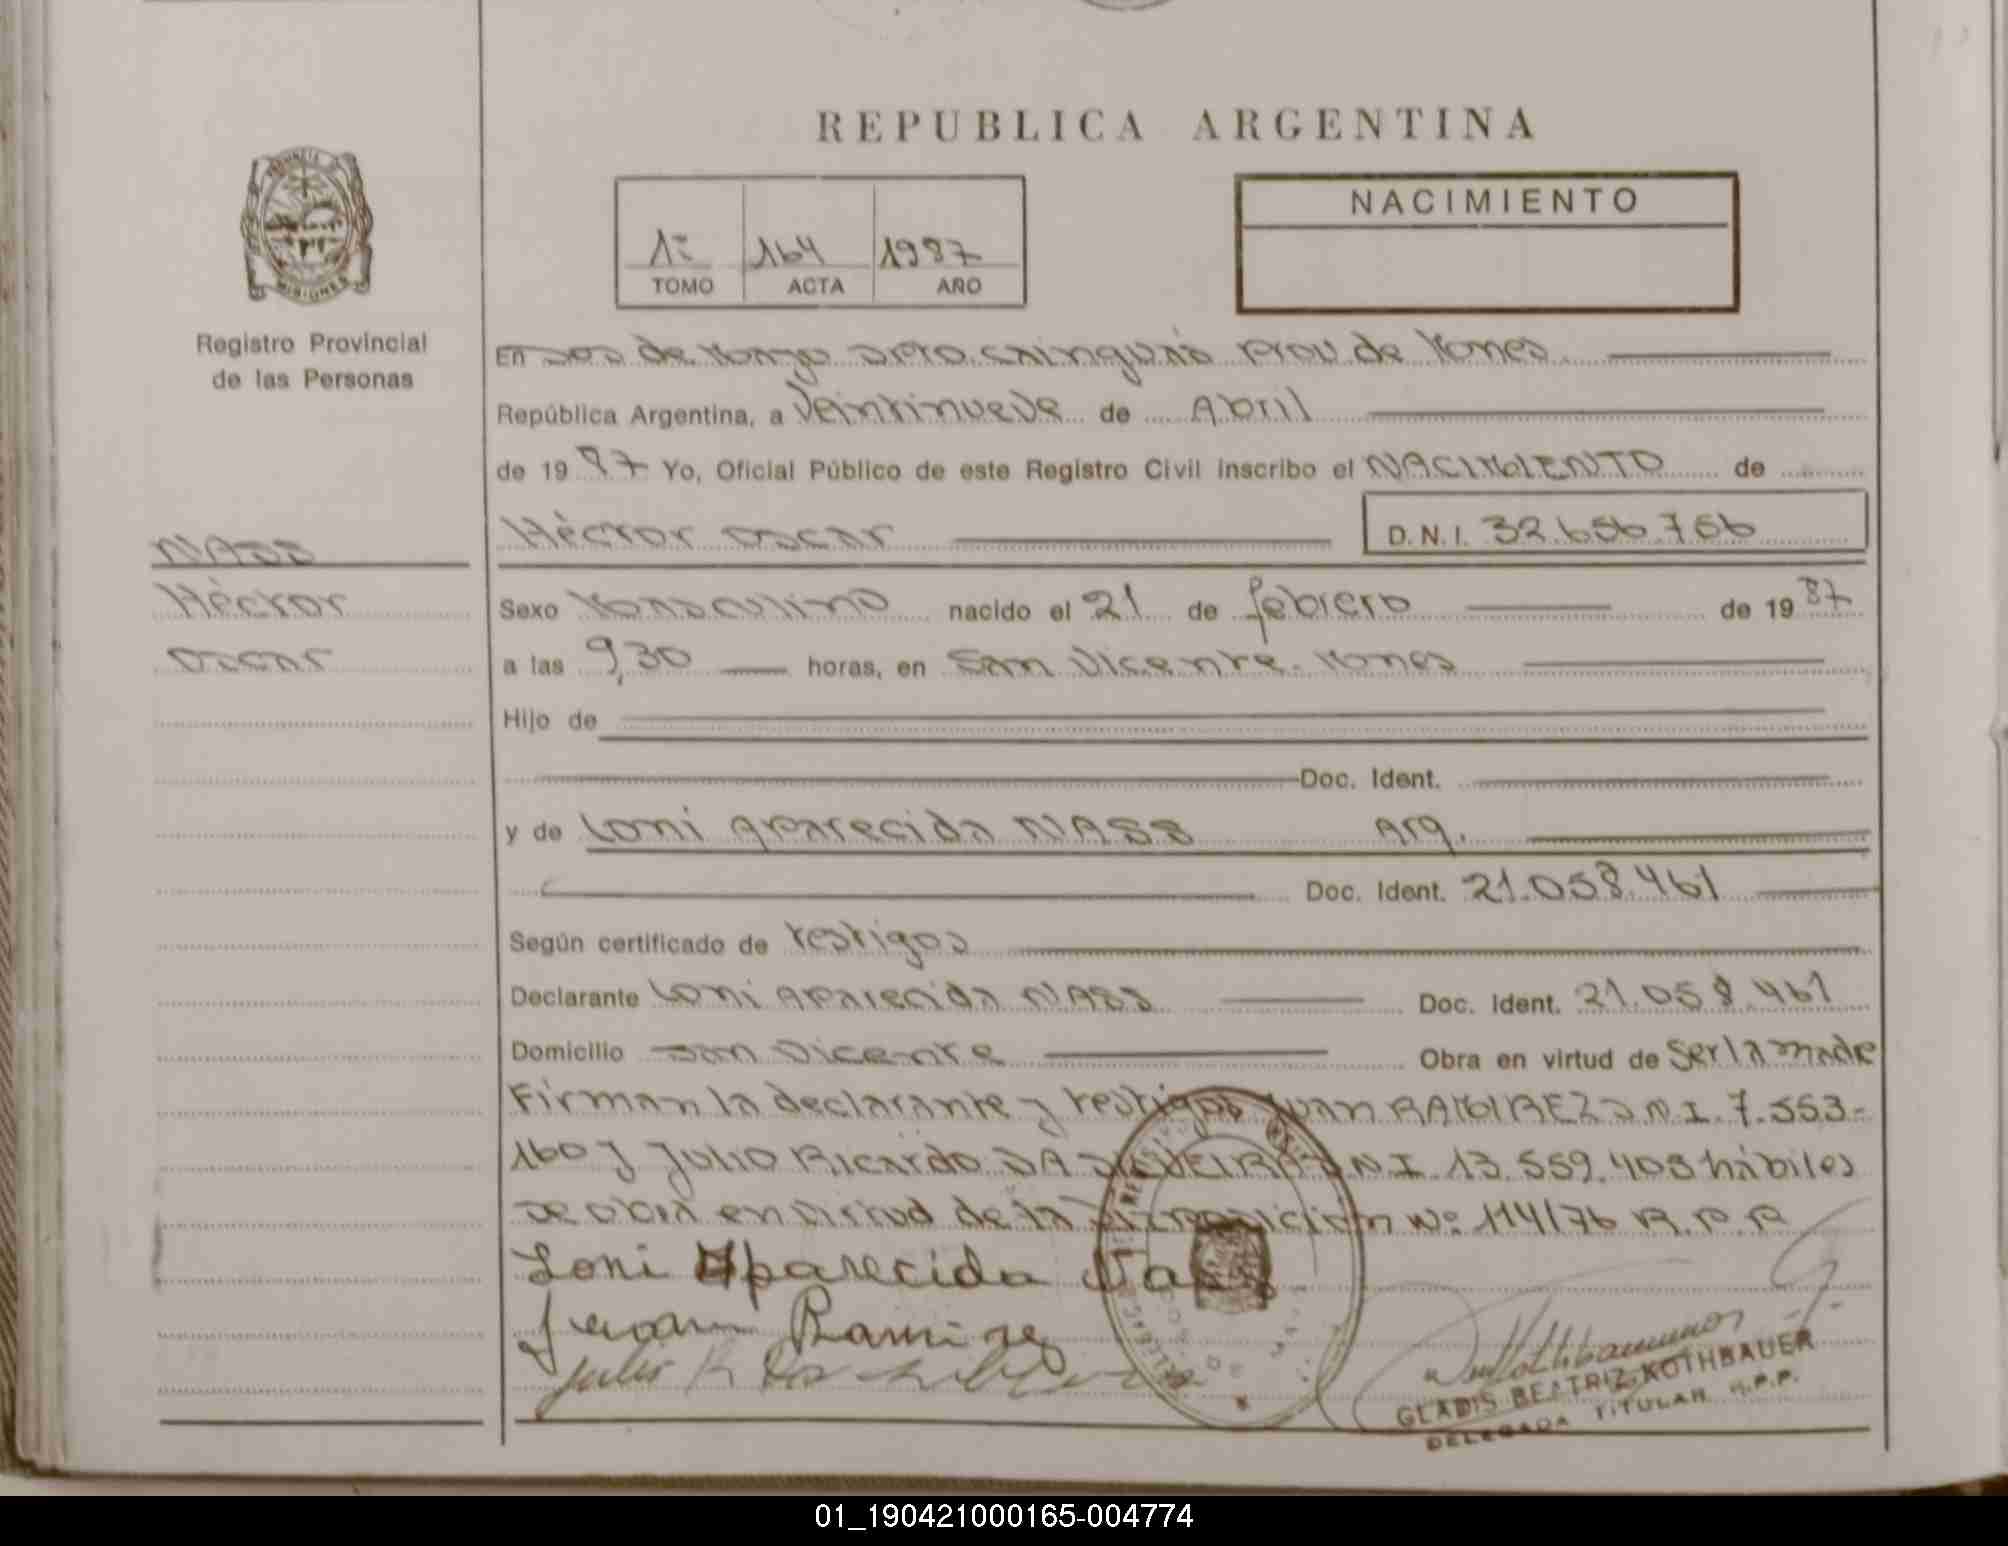 REPUBLICA ARGENTINA
PROVINCIA DE MISIONES
Registro Provincial
de las Personas
NASS
Héctor
Oscar
1º 164 1987
TOMO ACTA AÑO
NACIMIENTO
En Dos de Mayo Dpto. Cainguás Prov de Mones
República Argentina, a Veintinueve de Abril
de 1987 Yo, Oficial Público de este Registro Civil inscribo el NACIMIENTO de
Héctor Oscar D.N.I. 32.656.756
Sexo Masculino nacido el 21 de febrero de 1987
a las 9,30 horas, en San Vicente. Mones
Hijo de
Doc. Ident.
y de Loni Aparecida NASS Arg.
Doc. Ident. 21.058.461
Según certificado de testigos
Declarante Loni Aparecida NASS Doc. Ident. 21.058.461
Domicilio San Vicente Obra en virtud de Ser la madre
Firman la declarante y testigos Juan RAMIREZ D.N.I. 7.553-
160 y Julio Ricardo DA SILVEIRA D.N.I. 13.559.405 hábiles
Se obra en virtud de la Disposición Nº 114/76 R.P.P
Loni Aparecida Nass
Juan Ramirez
Julio R Da
GLADIS BEATRIZ KOTHBAUER
DELEGADA TITULAR R.P.P.
01_190421000165-004774